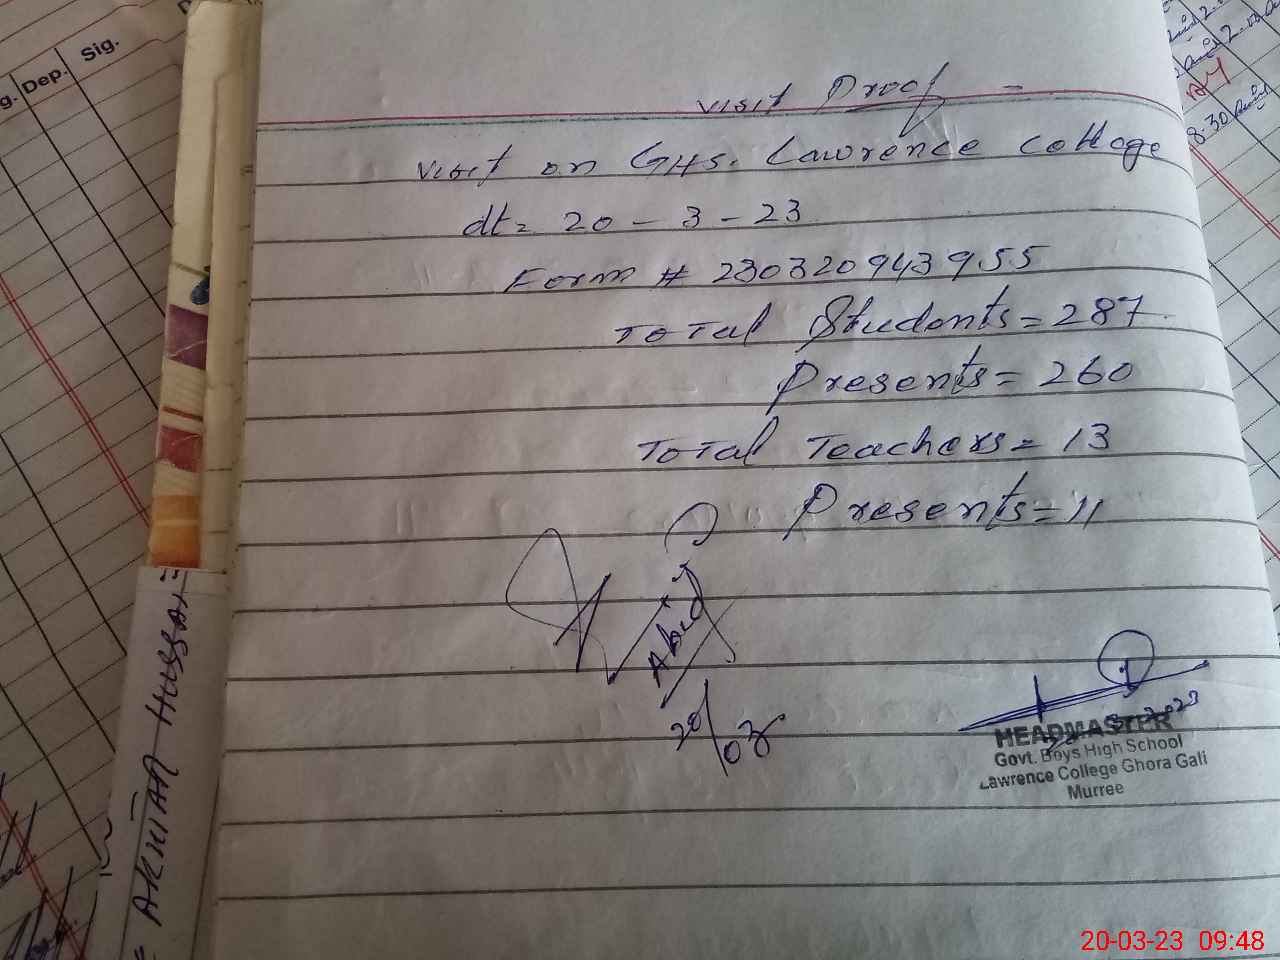 g. Dep. Sig.
visit Proof
visit on GHS. Lawrence college
dt= 20 - 3 - 23
Form # 230320943955
Total Students = 287
Presents = 260
Total Teachers = 13
Presents = 11
Abid
20/03
HEADMASTER
Govt. Boys High School
Lawrence College Ghora Gali
Murree
AKHTAR HUSSAI
8:30
20-03-23 09:48